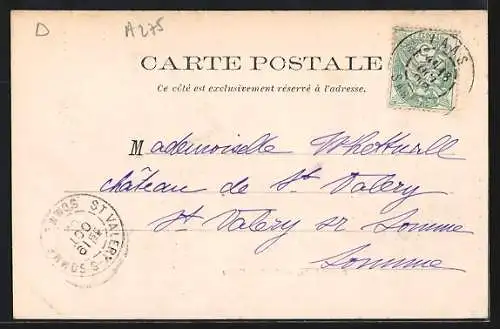 D A275
CARTE POSTALE
Ce côté est exclusivement réservé à l'adresse.
Mademoiselle
château de St Valery
St Valery sr Somme
Somme
ST VALERY
S. SOMME